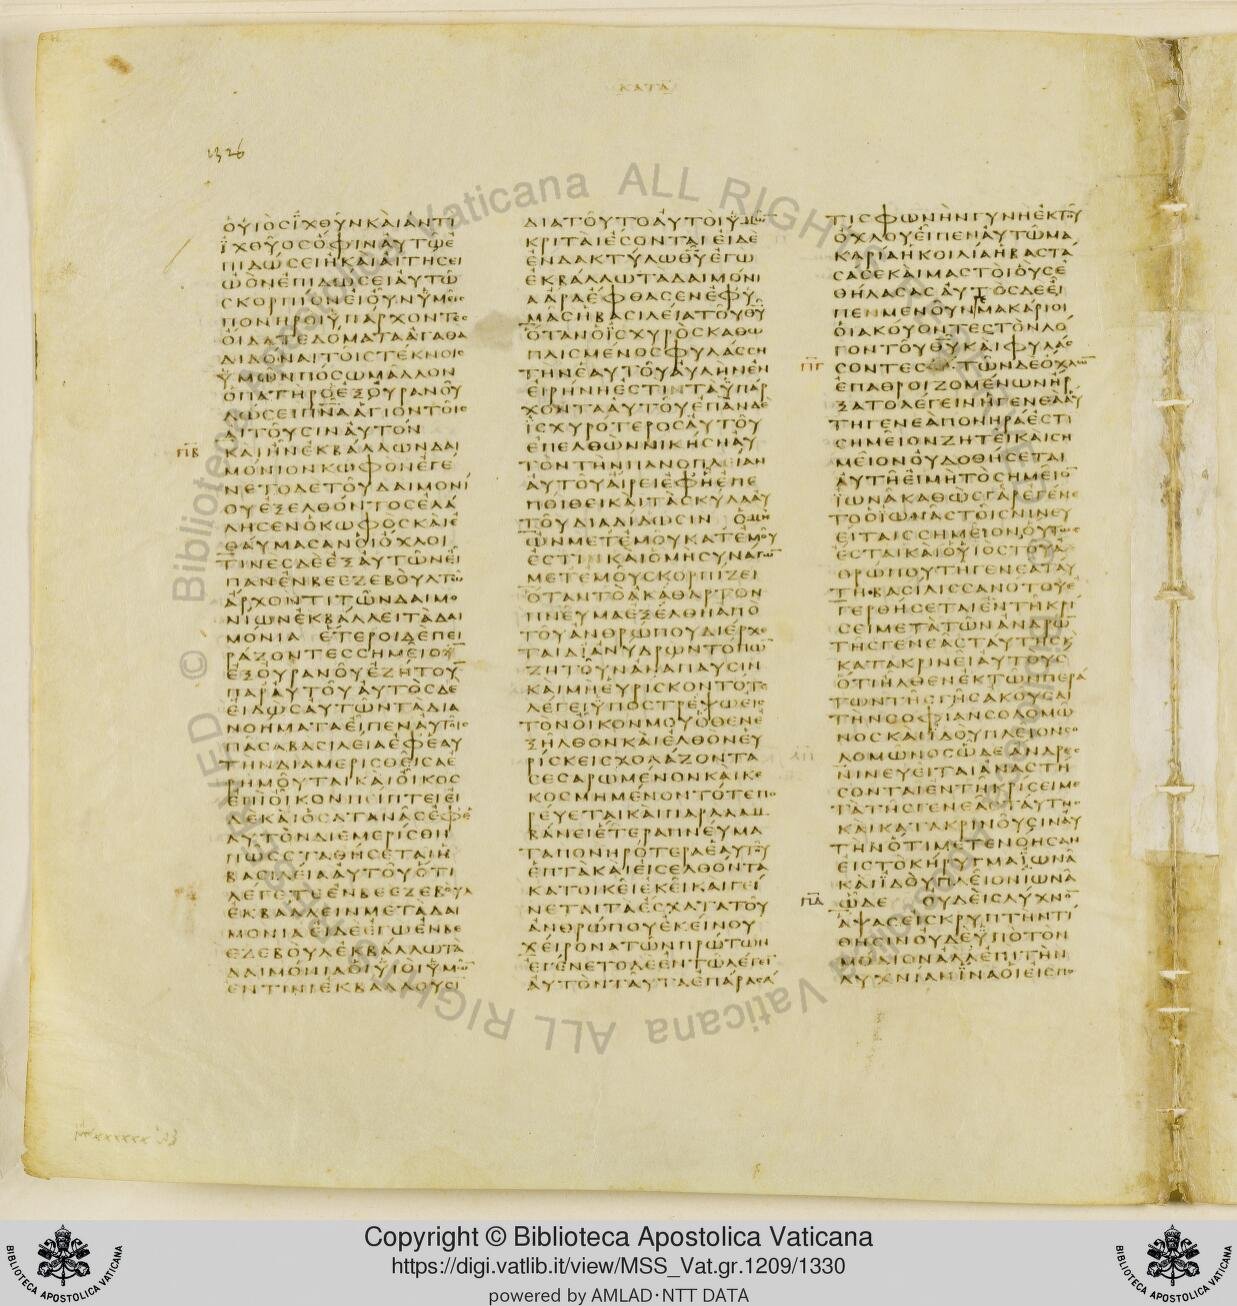 ΚΑΤΑ
1326
ΟΥΙΟΣΙΧΘΥΝΚΑΙΑΝΤΙ
ΙΧΘΥΟΣΟΦΙΝΑΥΤΩΕ
ΠΙΔΩΣΕΙΗΚΑΙΑΙΤΗΣΕΙ
ΩΟΝΕΠΙΔΩΣΕΙΑΥΤΩ
ΣΚΟΡΠΙΟΝΕΙΟΥΝΥΜΕΙΣ
ΠΟΝΗΡΟΙΥΠΑΡΧΟΝΤΕΣ
ΟΙΔΑΤΕΔΟΜΑΤΑΑΓΑΘΑ
ΔΙΔΟΝΑΙΤΟΙΣΤΕΚΝΟΙΣ
ΥΜΩΝΠΟΣΩΜΑΛΛΟΝ
ΟΠΑΤΗΡΟΕΞΟΥΡΑΝΟΥ
ΔΩΣΕΙΠΝΑΑΓΙΟΝΤΟΙΣ
ΑΙΤΟΥΣΙΝΑΥΤΟΝ
ΚΑΙΗΝΕΚΒΑΛΛΩΝΔΑΙ
ΜΟΝΙΟΝΚΩΦΟΝΕΓΕ
ΝΕΤΟΔΕΤΟΥΔΑΙΜΟΝΙ
ΟΥΕΞΕΛΘΟΝΤΟΣΕΛΑ
ΛΗΣΕΝΟΚΩΦΟΣΚΑΙΕ
ΘΑΥΜΑΣΑΝΟΙΟΧΛΟΙ
ΤΙΝΕΣΔΕΕΞΑΥΤΩΝΕΙ
ΠΑΝΕΝΒΕΕΖΕΒΟΥΛΤΩ
ΑΡΧΟΝΤΙΤΩΝΔΑΙΜΟ
ΝΙΩΝΕΚΒΑΛΛΕΙΤΑΔΑΙ
ΜΟΝΙΑ ΕΤΕΡΟΙΔΕΠΕΙ
ΡΑΖΟΝΤΕΣΣΗΜΕΙΟΝ
ΕΞΟΥΡΑΝΟΥΕΖΗΤΟΥ
ΠΑΡΑΥΤΟΥΑΥΤΟΣΔΕ
ΕΙΔΩΣΑΥΤΩΝΤΑΔΙΑ
ΝΟΗΜΑΤΑΕΙΠΕΝΑΥΤΟΙΣ
ΠΑΣΑΒΑΣΙΛΕΙΑΕΦΕΑΥ
ΤΗΝΔΙΑΜΕΡΙΣΘΕΙΣΑΕ
ΡΗΜΟΥΤΑΙΚΑΙΟΙΚΟΣ
ΕΠΙΟΙΚΟΝΠΕΙΠΤΕΙΕΙ
ΔΕΚΑΙΟΣΑΤΑΝΑΣΕΦΕ
ΑΥΤΟΝΔΙΕΜΕΡΙΣΘΗ
ΠΩΣΣΤΑΘΗΣΕΤΑΙΗ
ΒΑΣΙΛΕΙΑΑΥΤΟΥΟΤΙ
ΛΕΓΕΤΕΕΝΒΕΕΖΕΒΟΥΛ
ΕΚΒΑΛΛΕΙΝΜΕΤΑΔΑΙ
ΜΟΝΙΑΕΙΔΕΕΓΩΕΝΒΕ
ΕΖΕΒΟΥΛΕΚΒΑΛΛΩΤΑ
ΔΑΙΜΟΝΙΑΟΙΥΙΟΙΥΜΩΝ
ΕΝΤΙΝΙΕΚΒΑΛΛΟΥΣΙ
ΔΙΑΤΟΥΤΟΑΥΤΟΙΥΜΩΝ
ΚΡΙΤΑΙΕΣΟΝΤΑΙΕΙΔΕ
ΕΝΔΑΚΤΥΛΩΘΥΕΓΩ
ΕΚΒΑΛΛΩΤΑΔΑΙΜΟΝΙ
ΑΑΡΑΕΦΘΑΣΕΝΕΦΥ
ΜΑΣΗΒΑΣΙΛΕΙΑΤΟΥΘΥ
ΟΤΑΝΟΙΣΧΥΡΟΣΚΑΘΩ
ΠΛΙΣΜΕΝΟΣΦΥΛΑΣΣΗ
ΤΗΝΕΑΥΤΟΥΑΥΛΗΝΕΝ
ΕΙΡΗΝΗΕΣΤΙΝΤΑΥΠΑΡ
ΧΟΝΤΑΑΥΤΟΥΕΠΑΝΔΕ
ΙΣΧΥΡΟΤΕΡΟΣΑΥΤΟΥ
ΕΠΕΛΘΩΝΝΙΚΗΣΗΑΥ
ΤΟΝΤΗΝΠΑΝΟΠΛΕΙΑΝ
ΑΥΤΟΥΑΙΡΕΙΕΦΗΕΠΕ
ΠΟΙΘΕΙΚΑΙΤΑΣΚΥΛΑΑΥ
ΤΟΥΔΙΑΔΙΔΩΣΙΝ ΟΜΗ
ΩΝΜΕΤΕΜΟΥΚΑΤΕΜΟΥ
ΕΣΤΙΝΚΑΙΟΜΗΣΥΝΑΓΩ
ΜΕΤΕΜΟΥΣΚΟΡΠΙΖΕΙ
ΟΤΑΝΤΟΑΚΑΘΑΡΤΟΝ
ΠΝΕΥΜΑΕΞΕΛΘΗΑΠΟ
ΤΟΥΑΝΘΡΩΠΟΥΔΙΕΡΧΕ
ΤΑΙΔΙΑΝΥΔΡΩΝΤΟΠΩ
ΖΗΤΟΥΝΑΝΑΠΑΥΣΙΝ
ΚΑΙΜΗΕΥΡΙΣΚΟΝΤΟΤΕ
ΛΕΓΕΙΥΠΟΣΤΡΕΨΩΕΙΣ
ΤΟΝΟΙΚΟΝΜΟΥΟΘΕΝΕ
ΞΗΛΘΟΝΚΑΙΕΛΘΟΝΕΥ
ΡΙΣΚΕΙΣΧΟΛΑΖΟΝΤΑ
ΣΕΣΑΡΩΜΕΝΟΝΚΑΙΚΕ
ΚΟΣΜΗΜΕΝΟΝΤΟΤΕΠΟ
ΡΕΥΕΤΑΙΚΑΙΠΑΡΑΛΑΜ
ΒΑΝΕΙΕΤΕΡΑΠΝΕΥΜΑ
ΤΑΠΟΝΗΡΟΤΕΡΑΕΑΥΤΟΥ
ΕΠΤΑΚΑΙΕΙΣΕΛΘΟΝΤΑ
ΚΑΤΟΙΚΕΙΕΚΕΙΚΑΙΓΕΙ
ΝΕΤΑΙΤΑΕΣΧΑΤΑΤΟΥ
ΑΝΘΡΩΠΟΥΕΚΕΙΝΟΥ
ΧΕΙΡΟΝΑΤΩΝΠΡΩΤΩΝ
ΕΓΕΝΕΤΟΔΕΕΝΤΩΛΕΓΕΙ
ΑΥΤΟΝΤΑΥΤΑΕΠΑΡΑΣΑ
ΤΙΣΦΩΝΗΝΓΥΝΗΕΚΤΟΥ
ΟΧΛΟΥΕΙΠΕΝΑΥΤΩΜΑ
ΚΑΡΙΑΗΚΟΙΛΙΑΗΒΑΣΤΑ
ΣΑΣΕΚΑΙΜΑΣΤΟΙΟΥΣΕ
ΘΗΛΑΣΑΣΑΥΤΟΣΔΕΕΙ
ΠΕΝΜΕΝΟΥΝΜΑΚΑΡΙΟΙ
ΟΙΑΚΟΥΟΝΤΕΣΤΟΝΛΟ
ΓΟΝΤΟΥΘΥΚΑΙΦΥΛΑΣ
ΣΟΝΤΕΣ ΤΩΝΔΕΟΧΛΩΝ
ΕΠΑΘΡΟΙΖΟΜΕΝΩΝΗΡ
ΞΑΤΟΛΕΓΕΙΝΗΓΕΝΕΑΑΥ
ΤΗΓΕΝΕΑΠΟΝΗΡΑΕΣΤΙ
ΣΗΜΕΙΟΝΖΗΤΕΙΚΑΙΣΗ
ΜΕΙΟΝΟΥΔΟΘΗΣΕΤΑΙ
ΑΥΤΗΕΙΜΗΤΟΣΗΜΕΙΟ
ΙΩΝΑΚΑΘΩΣΓΑΡΕΓΕΝΕ
ΤΟΟΙΩΝΑΣΤΟΙΣΝΙΝΕΥ
ΕΙΤΑΙΣΣΗΜΕΙΟΝΟΥΤΩΣ
ΕΣΤΑΙΚΑΙΟΥΙΟΣΤΟΥΑ
ΘΡΩΠΟΥΤΗΓΕΝΕΑΤΑΥ
ΤΗ ΒΑΣΙΛΙΣΣΑΝΟΤΟΥΕ
ΓΕΡΘΗΣΕΤΑΙΕΝΤΗΚΡΙ
ΣΕΙΜΕΤΑΤΩΝΑΝΔΡΩ
ΤΗΣΓΕΝΕΑΣΤΑΥΤΗΣΚ
ΚΑΤΑΚΡΙΝΕΙΑΥΤΟΥΣ
ΟΤΙΗΛΘΕΝΕΚΤΩΝΠΕΡΑ
ΤΩΝΤΗΣΓΗΣΑΚΟΥΣΑΙ
ΤΗΝΣΟΦΙΑΝΣΟΛΟΜΩ
ΝΟΣΚΑΙΙΔΟΥΠΛΕΙΟΝΣΟ
ΛΟΜΩΝΟΣΩΔΕΑΝΔΡΕΣ
ΝΙΝΕΥΕΙΤΑΙΑΝΑΣΤΗ
ΣΟΝΤΑΙΕΝΤΗΚΡΙΣΕΙΜΕ
ΤΑΤΗΣΓΕΝΕΑΣΤΑΥΤΗΣ
ΚΑΙΚΑΤΑΚΡΙΝΟΥΣΙΝΑΥ
ΤΗΝΟΤΙΜΕΤΕΝΟΗΣΑΝ
ΕΙΣΤΟΚΗΡΥΓΜΑΙΩΝΑ
ΚΑΙΙΔΟΥΠΛΕΙΟΝΙΩΝΑ
ΩΔΕ ΟΥΔΕΙΣΛΥΧΝΟ
ΑΨΑΣΕΙΣΚΡΥΠΤΗΝΤΙ
ΘΗΣΙΝΟΥΔΕΥΠΟΤΟΝ
ΜΟΔΙΟΝΑΛΛΕΠΙΤΗΝ
ΛΥΧΝΙΑΝΙΝΑΟΙΕΙΣΠΟ
© Biblioteca Apostolica Vaticana ALL RIGHTS RESERVED
Copyright © Biblioteca Apostolica Vaticana
https://digi.vatlib.it/view/MSS_Vat.gr.1209/1330
powered by AMLAD·NTT DATA
BIBLIOTECA APOSTOLICA VATICANA
BIBLIOTECA APOSTOLICA VATICANA